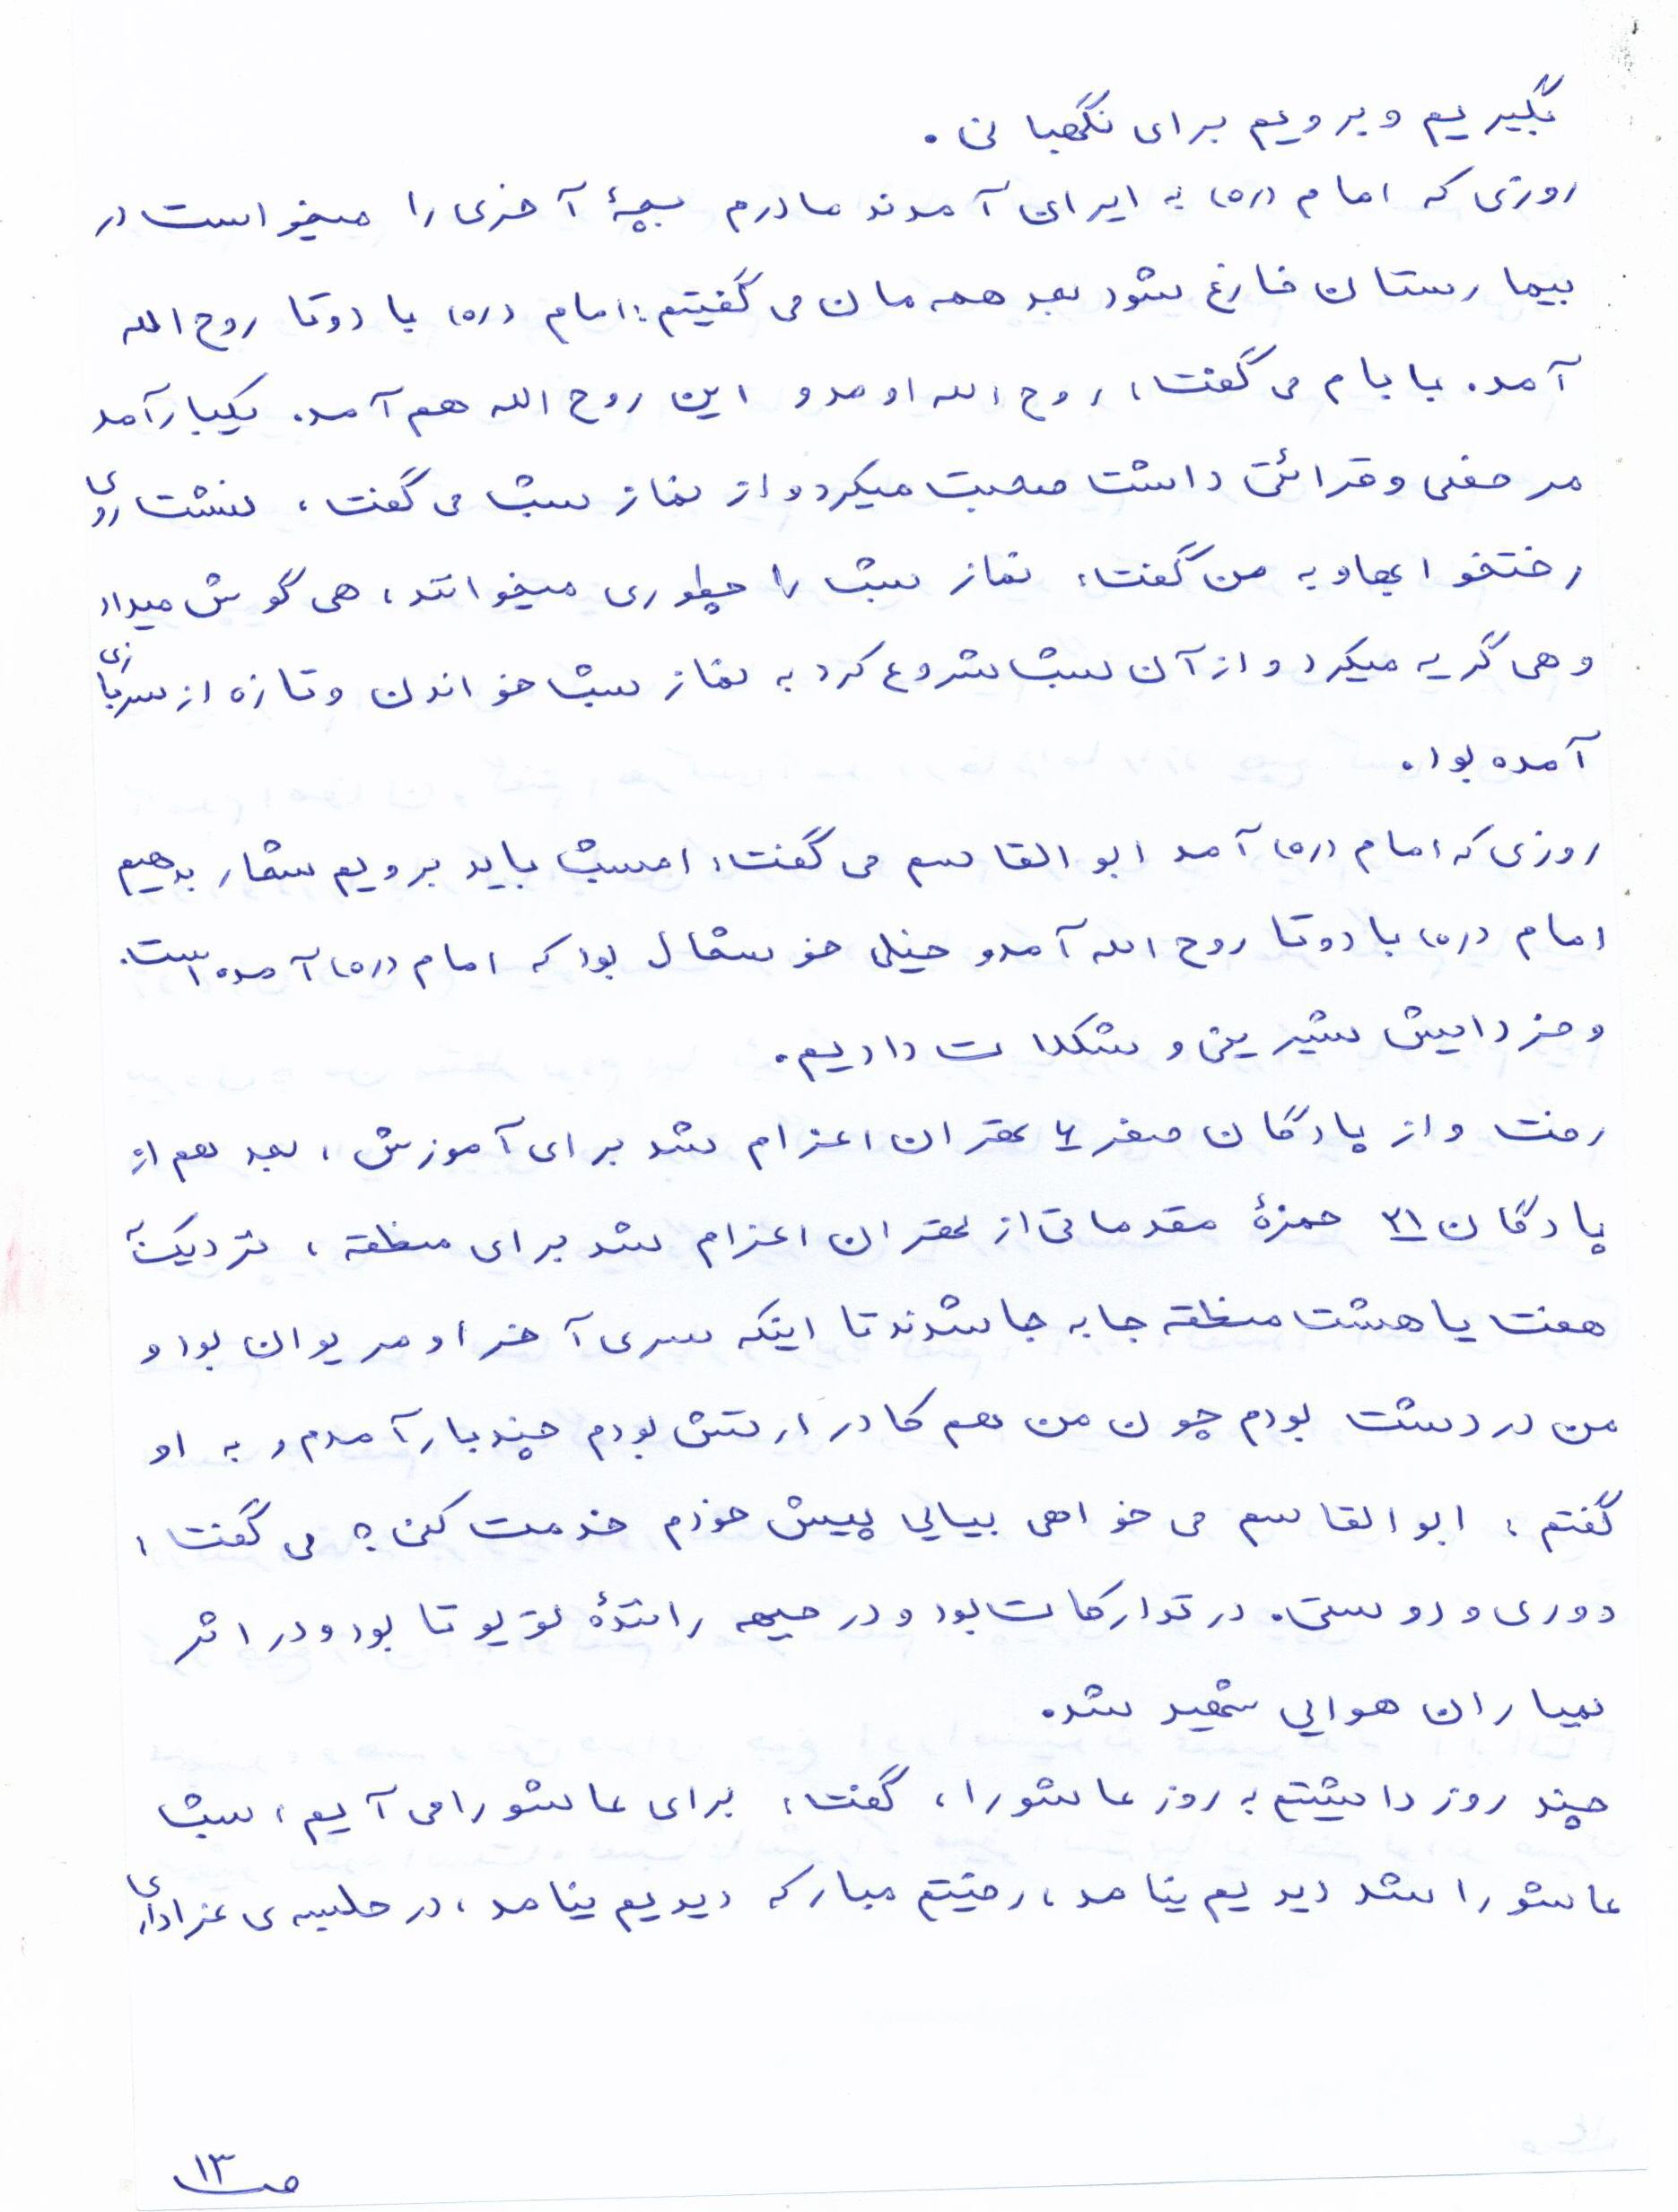 بگیریم و برویم برای نگهبانی.
روزی که امام (ره) به ایران آمدند مادرم بچهٔ آخری را میخواست در
بیمارستان فارغ شود بعد همه مان می گفتیم: امام (ره) با دوتا روح الله
آمد. بابام می گفت: روح الله اومد و این روح الله هم آمد. یکبار آمد
مرخصی و قرائتی داشت صحبت میکرد و از نماز شب می گفت، نشست روی
رختخوابها و به من گفت: نماز شب را چطوری میخوانند، هی گوش میداد
و هی گریه میکرد و از آن شب شروع کرد به نماز شب خواندن و تازه از سربازی
آمده بود.
روزی که امام (ره) آمد ابوالقاسم می گفت: امشب باید برویم شعار بدهیم
امام (ره) با دوتا روح الله آمد و خیلی خوشحال بود که امام (ره) آمده است.
و فردایش شیرینی و شکلات دادیم.
رفت و از پادگان صفر ۶ تهران اعزام شد برای آموزش، بعد هم از
پادگان ۲۱ حمزهٔ مقدماتی از تهران اعزام شد برای منطقه، نزدیک به
هفت یا هشت منطقه جا به جا شدند تا اینکه سری آخر او مریوان بود و
من در دشت بودم چون من هم کادر ارتش بودم چند بار آمدم و به او
گفتم: ابوالقاسم می خواهی بیایی پیش خودم خدمت کنی؟ می گفت:
دوری و دوستی. در تدارکات بود و در جبهه رانندهٔ تویوتا بود و در اثر
بمباران هوایی شهید شد.
چند روز داشتیم به روز عاشورا، گفت: برای عاشورا می آیم، شب
عاشورا شد دیدیم نیامد، رفتیم مبارکه دیدیم نیامد، در جلسه ی عزاداری
ص ۱۳